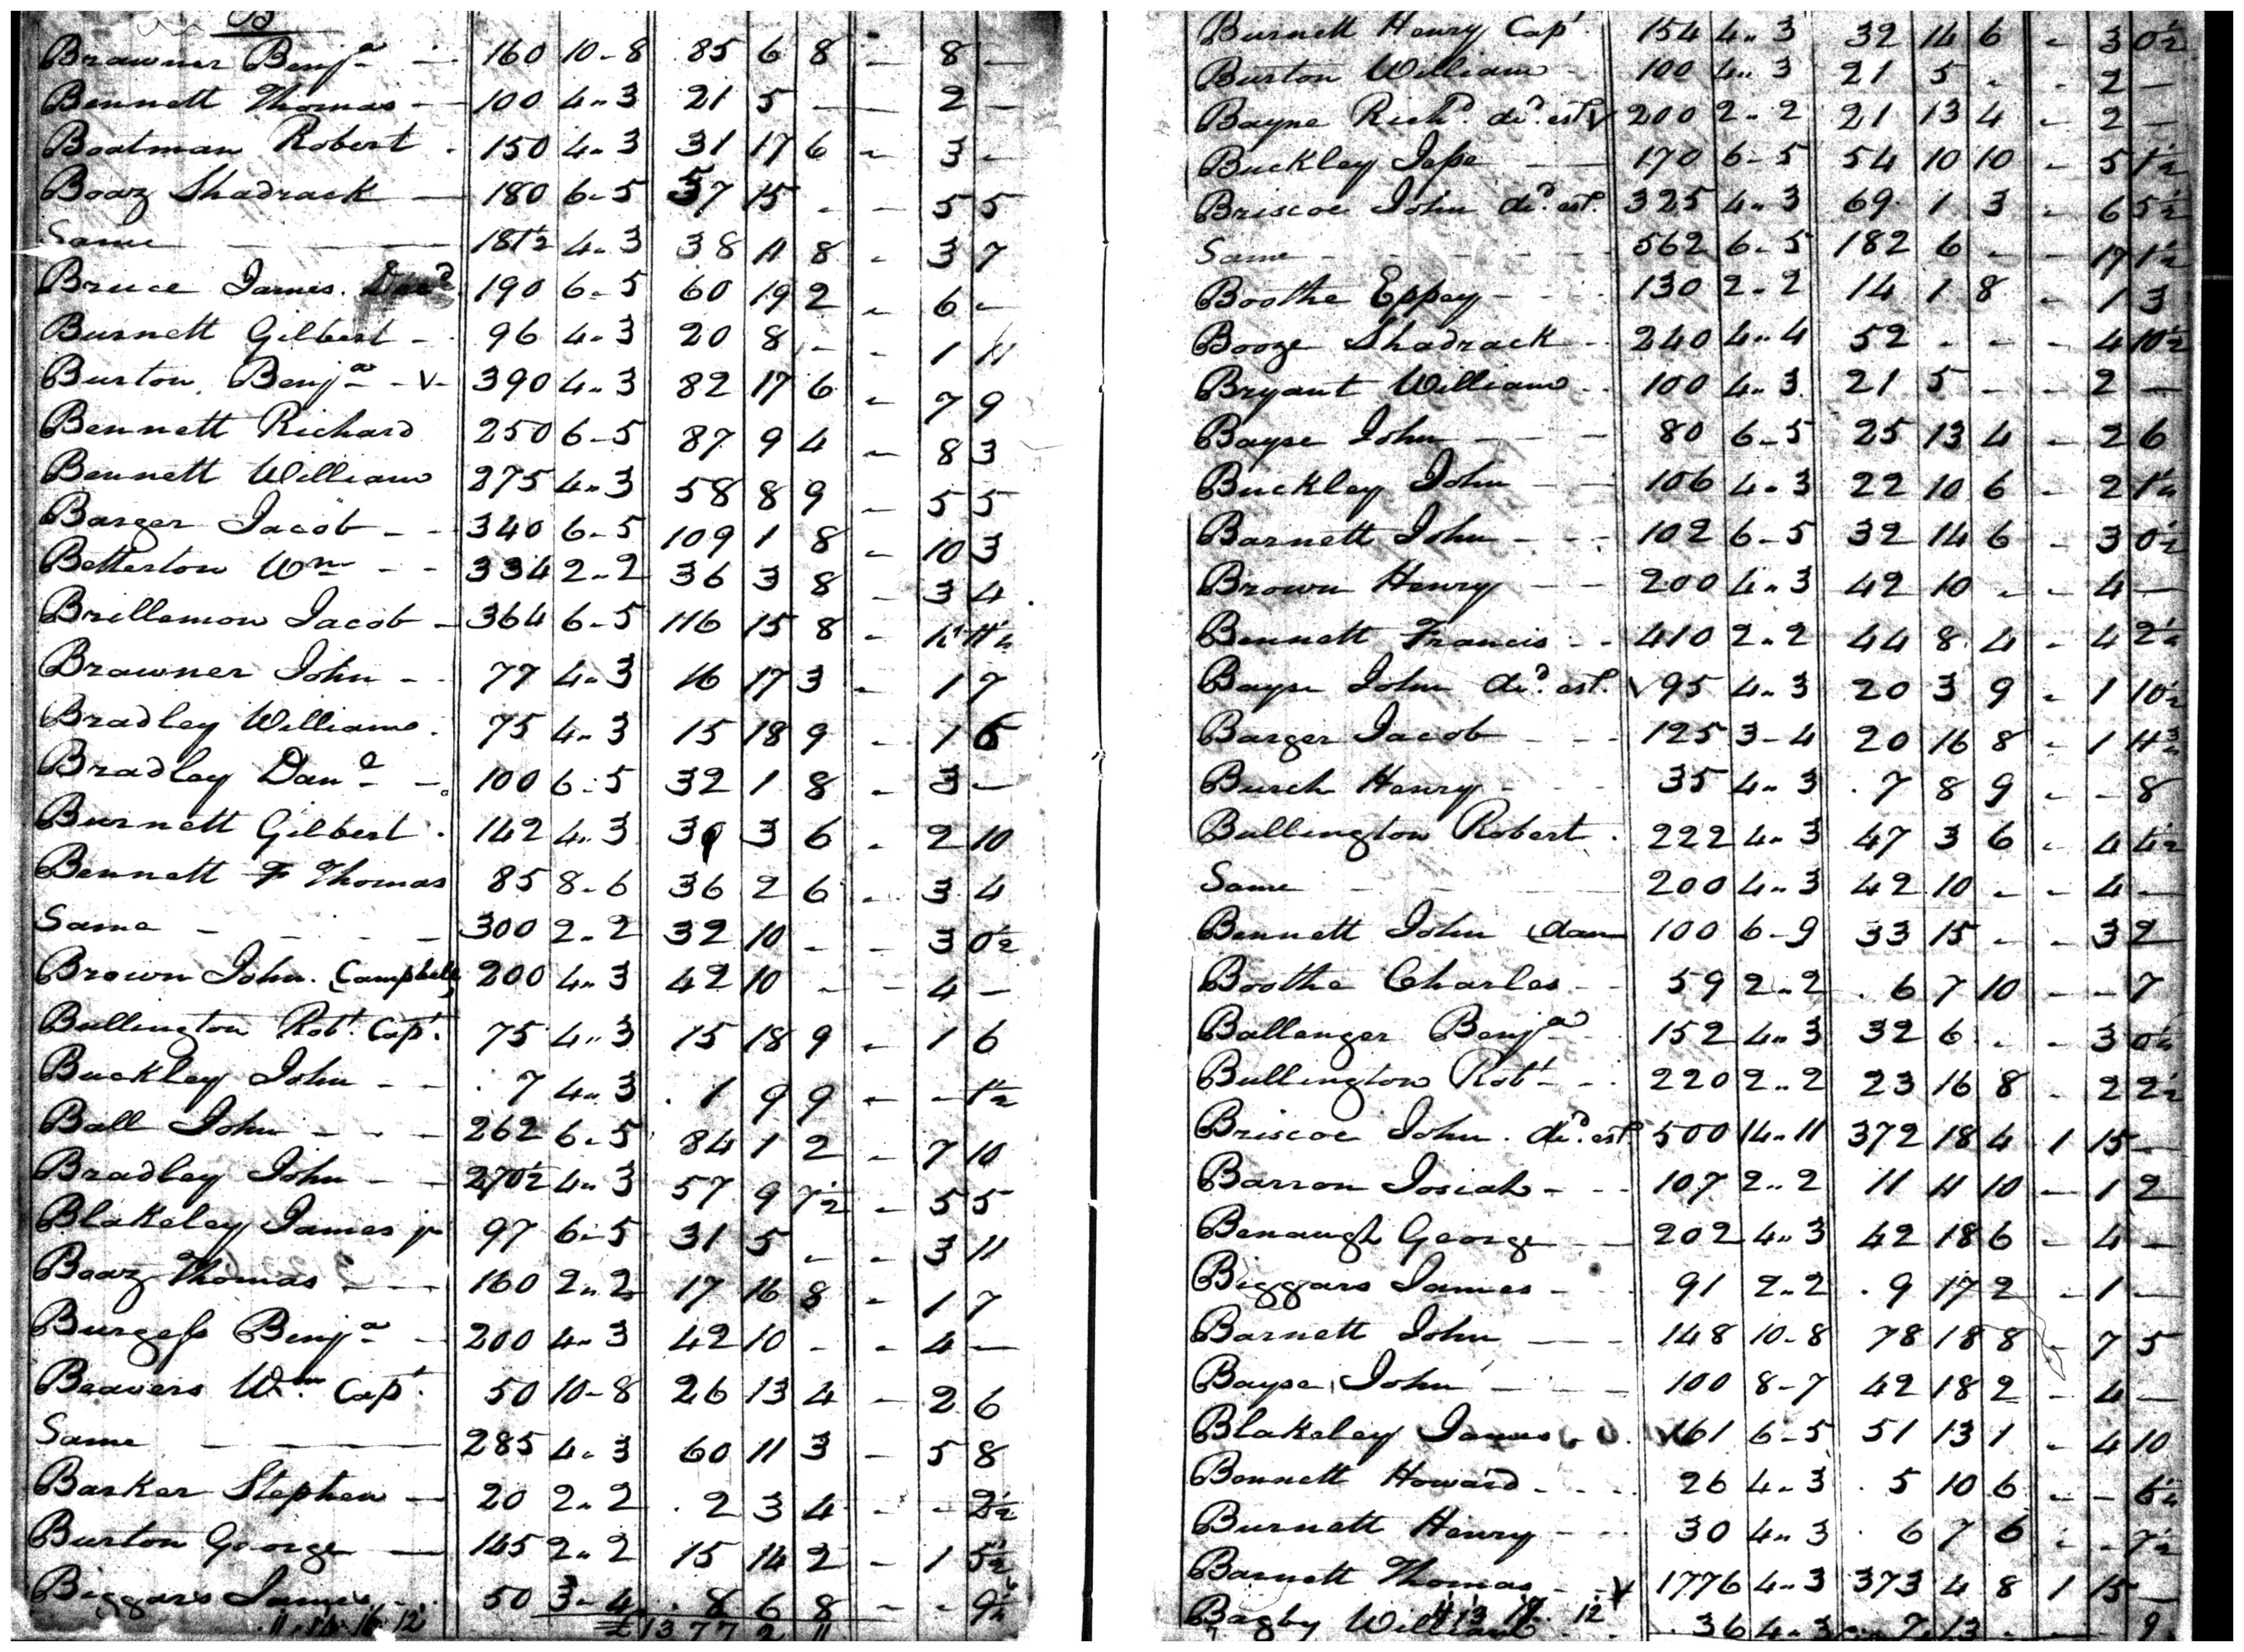 B
Brawner Benja 160 10-8 85 6 8 - 8 -
Bennett Thomas 100 4.. 3 21 5 - - 2 -
Boatman Robert 150 4.. 3 31 17 6 - 3 -
Boaz Shadrack 180 6-5 57 15 - - 5 5
Same 181½ 4.. 3 38 11 8 - 3 7
Bruce James. 190 6-5 60 19 2 - 6 -
Burnett Gilbert 96 4.. 3 20 8 - - 1 11
Burton Benja - v - 390 4.. 3 82 17 6 - 7 9
Bennett Richard 250 6-5 87 9 4 - 8 3
Bennett William 275 4.. 3 58 8 9 - 5 5
Barger Jacob 340 6-5 109 1 8 - 10 3
Betterton Wm 334 2..2 36 3 8 - 3 4
Brillemon Jacob 364 6-5 116 15 8 -
Brawner John 77 4.. 3 16 17 3 - 1 7
Bradley William 75 4.. 3 15 18 9 - 1 6
Bradley Danl 100 6-5 32 1 8 - 3 -
Burnett Gilbert 142 4.. 3 30 3 6 - 2 10
Bennett F Thomas 85 8-6 36 2 6 - 3 4
Same 300 2..2 32 10 - - 3 0½
Brown John. (Campbell) 200 4.. 3 42 10 - - 4 -
Bullington Robt. Capt. 75 4.. 3 15 18 9 - 1 6
Buckley John 7 4.. 3 1 9 9 - - 1½
Ball John 262 6-5 84 1 2 - 7 10
Bradley John 270½ 4.. 3 57 9 7½ - 5 5
Blakeley James jr 97 6-5 31 5 - - 3 11
Boaz Thomas 160 2..2 17 16 8 - 1 7
Burgess Benja 200 4.. 3 42 10 - - 4 -
Beavers Wm Capt. 50 10-8 26 13 4 - 2 6
Same 285 4.. 3 60 11 3 - 5 8
Barker Stephen 20 2..2 2 3 4 - - 2½
Burton George 145 2..2 15 14 2 - 1 5½
Biggars James 50 3-4 8 6 8 - - 9½
£1377 2 11
Burnett Henry Capt. 154 4.. 3 32 14 6 - 3 0½
Burton William 100 4.. 3 21 5 - - 2 -
Bayne Richd. decd. est. v 200 2..2 21 13 4 - 2 -
Buckley Jesse 170 6-5 54 10 10 - 5 1½
Briscoe John decd. est. 325 4.. 3 69 1 3 - 6 5½
Same 562 6-5 182 6 - - 17 1½
Boothe Eppey 130 2..2 14 1 8 - 1 3
Booze Shadrack 240 4.. 4 52 - - - 4 10½
Bryant William 100 4.. 3 21 5 - - 2 -
Bayse John 80 6-5 25 13 4 - 2 6
Buckley John 106 4.. 3 22 10 6 - 2 1½
Barnett John 102 6-5 32 14 6 - 3 0½
Brown Henry 200 4.. 3 42 10 - - 4 -
Bennett Francis 410 2..2 44 8 4 - 4 2½
Bayse John decd. est. v 95 4.. 3 20 3 9 - 1 10½
Barger Jacob 125 3-4 20 16 8 - 1 11¾
Burch Henry 35 4.. 3 7 8 9 - - 8
Bullington Robert 222 4.. 3 47 3 6 - 4 4½
Same 200 4.. 3 42 10 - - 4 -
Bennett John (dan 100 6-9 33 15 - - 3 2
Boothe Charles 59 2..2 6 7 10 - - 7
Ballenger Benja 152 4.. 3 32 6 - - 3 0½
Bullington Robt 220 2..2 23 16 8 - 2 2½
Briscoe John. decd. est. 500 14..11 372 18 4 1 15 -
Barron Josiah 107 2..2 11 11 10 - 1 2
Benaugh George 202 4.. 3 42 18 6 - 4 -
Biggars James 91 2..2 9 17 2 - 1 -
Barnett John 148 10-8 78 18 8 - 7 5
Bayse John 100 8-7 42 18 2 - 4 -
Blakeley James 161 6-5 51 13 1 - 4 10
Bennett Howard 26 4.. 3 5 10 6 - - 6½
Burnett Henry 30 4.. 3 6 7 6 - - 7½
Barnett Thomas v 1776 4.. 3 373 4 8 1 15 -
Bagby William 36 4.. 3 7 13 - - 9